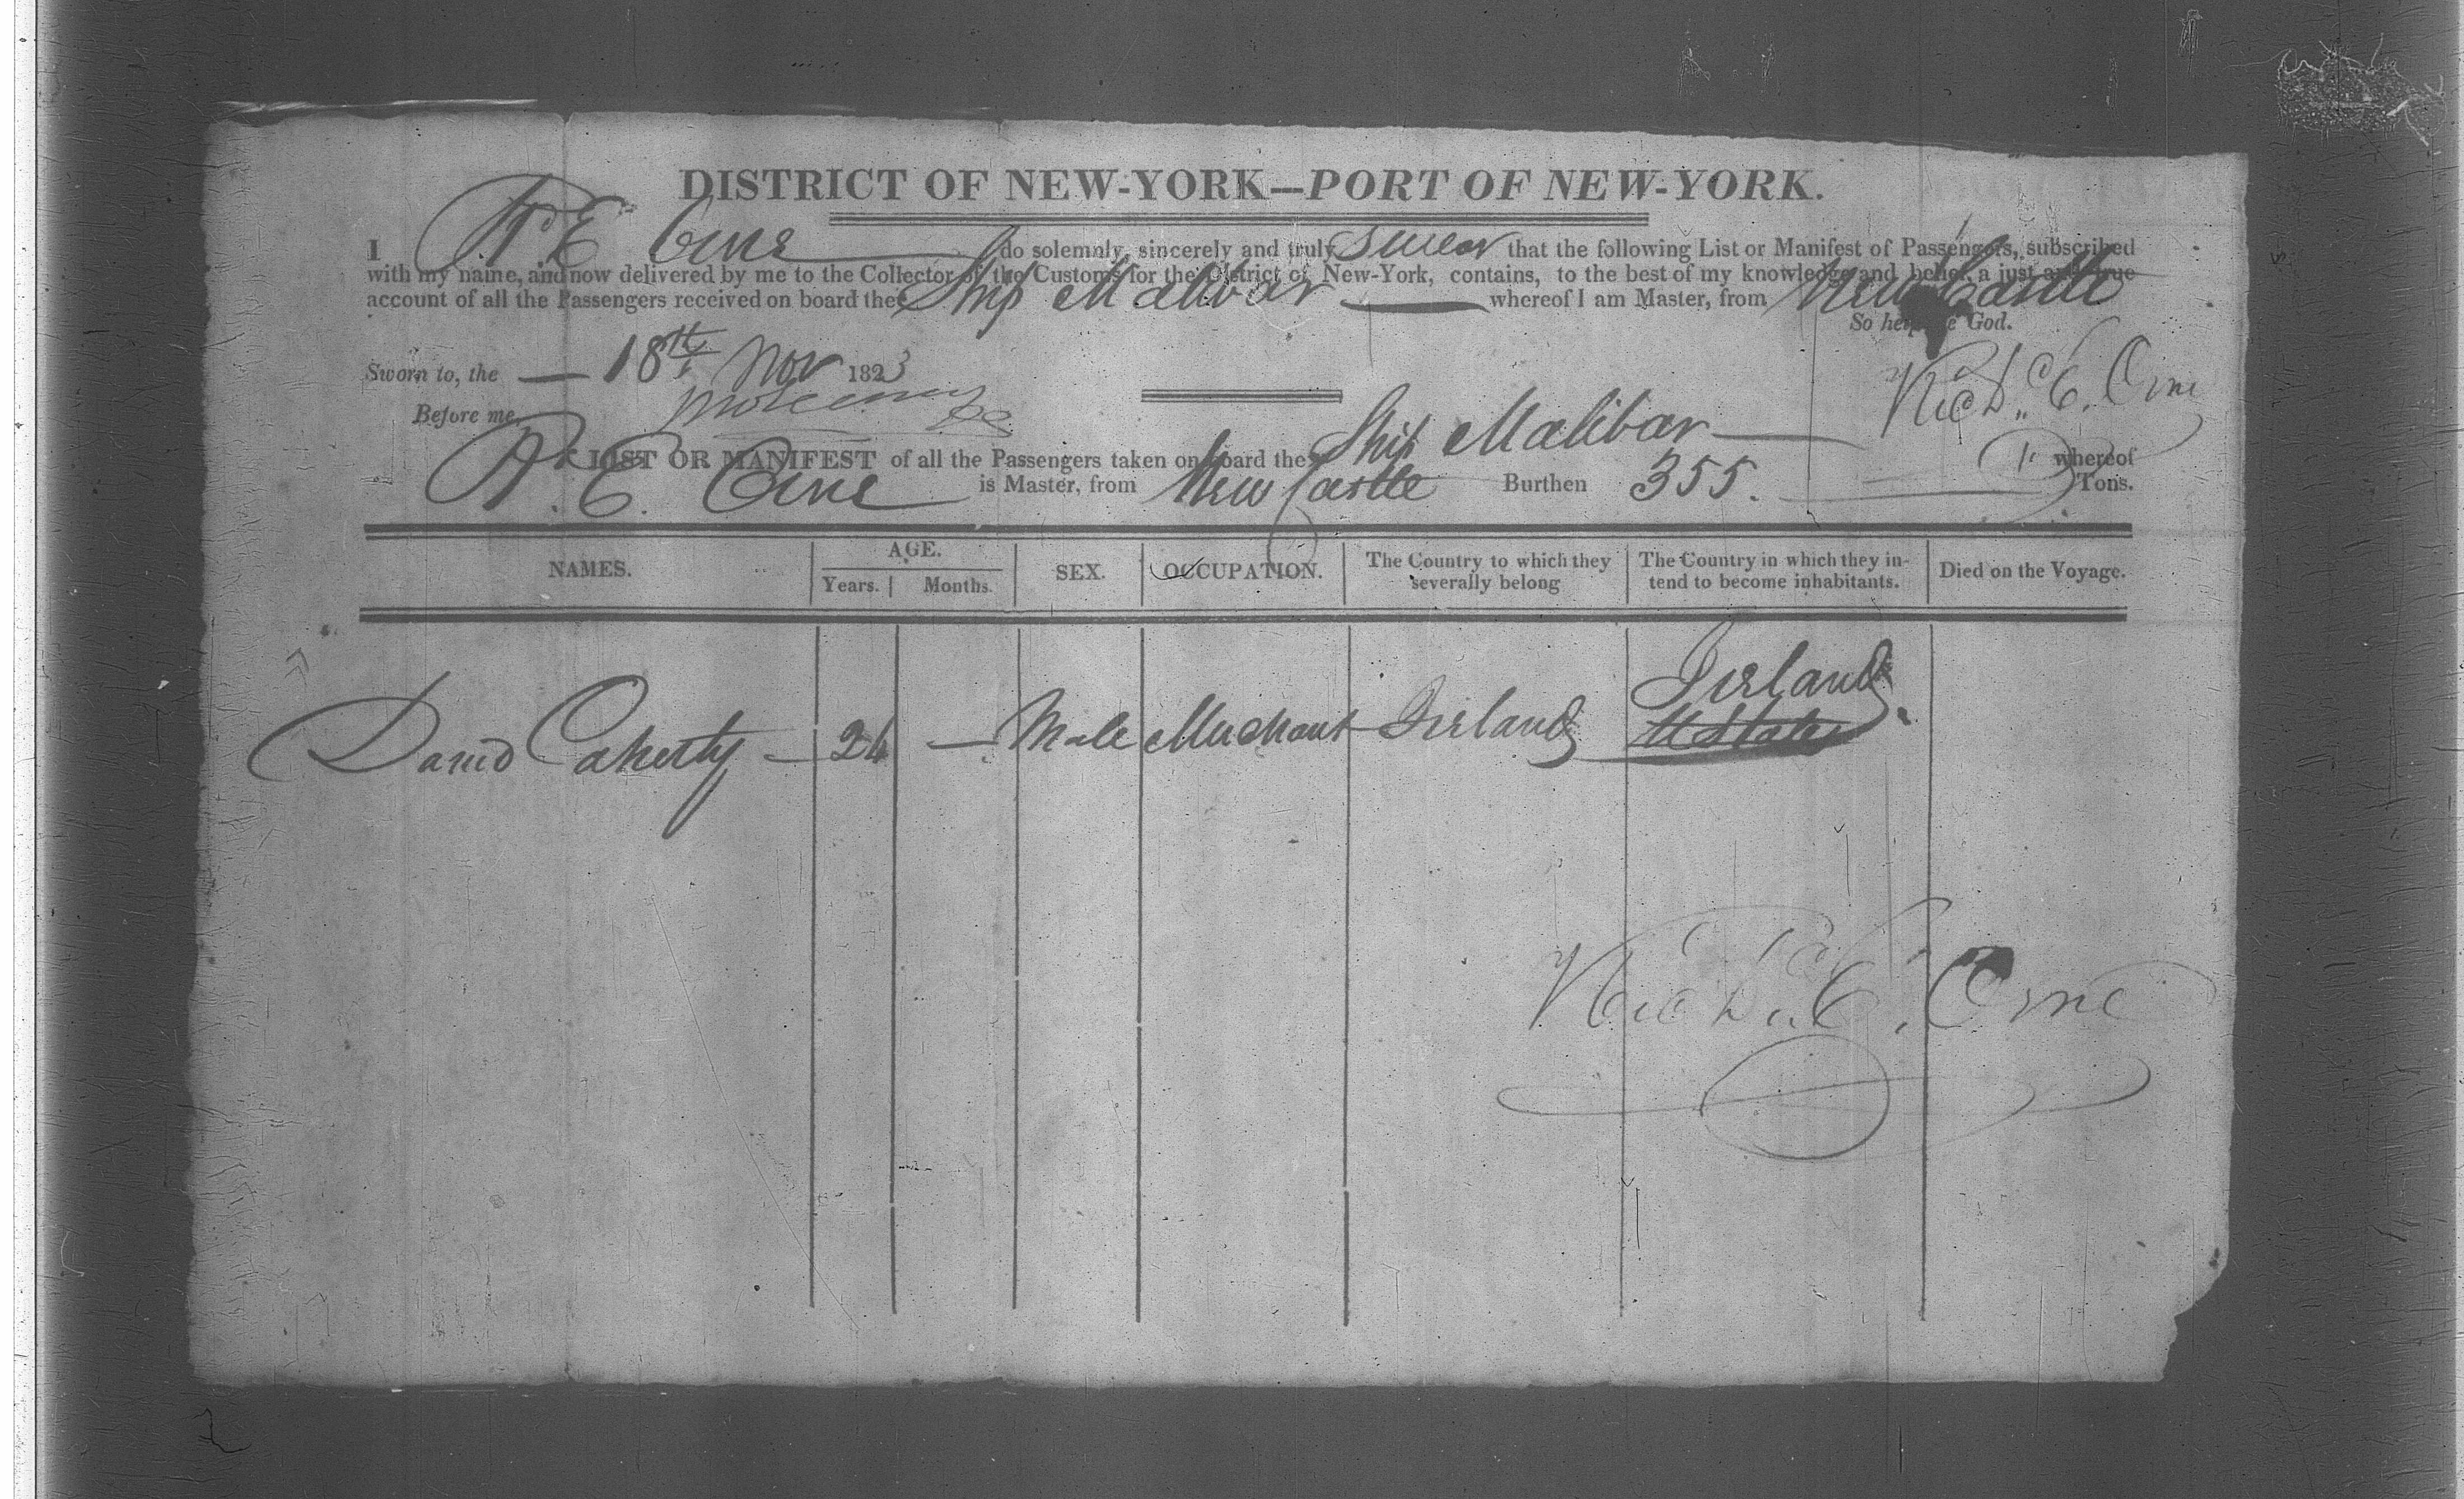 DISTRICT OF NEW-YORK—PORT OF NEW-YORK.
I R E Orne do solemnly, sincerely and truly swear that the following List or Manifest of Passengers, subscribed
with my name, and now delivered by me to the Collector of the Customs for the District of New-York, contains, to the best of my knowledge and belief, a just and true
account of all the Passengers received on board the Ship Malibar whereof I am Master, from New Castle
So help me God.
Sworn to, the 18th Nov 1823
Richd. E. Orne
Before me,
LIST OR MANIFEST of all the Passengers taken on board the Ship Malibar whereof
R. E. Orne is Master, from New Castle Burthen 355. Tons.
NAMES. AGE. Years. Months. SEX. OCCUPATION. The Country to which they severally belong The Country in which they intend to become inhabitants. Died on the Voyage.
Ireland
David Caherty — 24 — Male Merchant Ireland U States
Richd. E. Orne